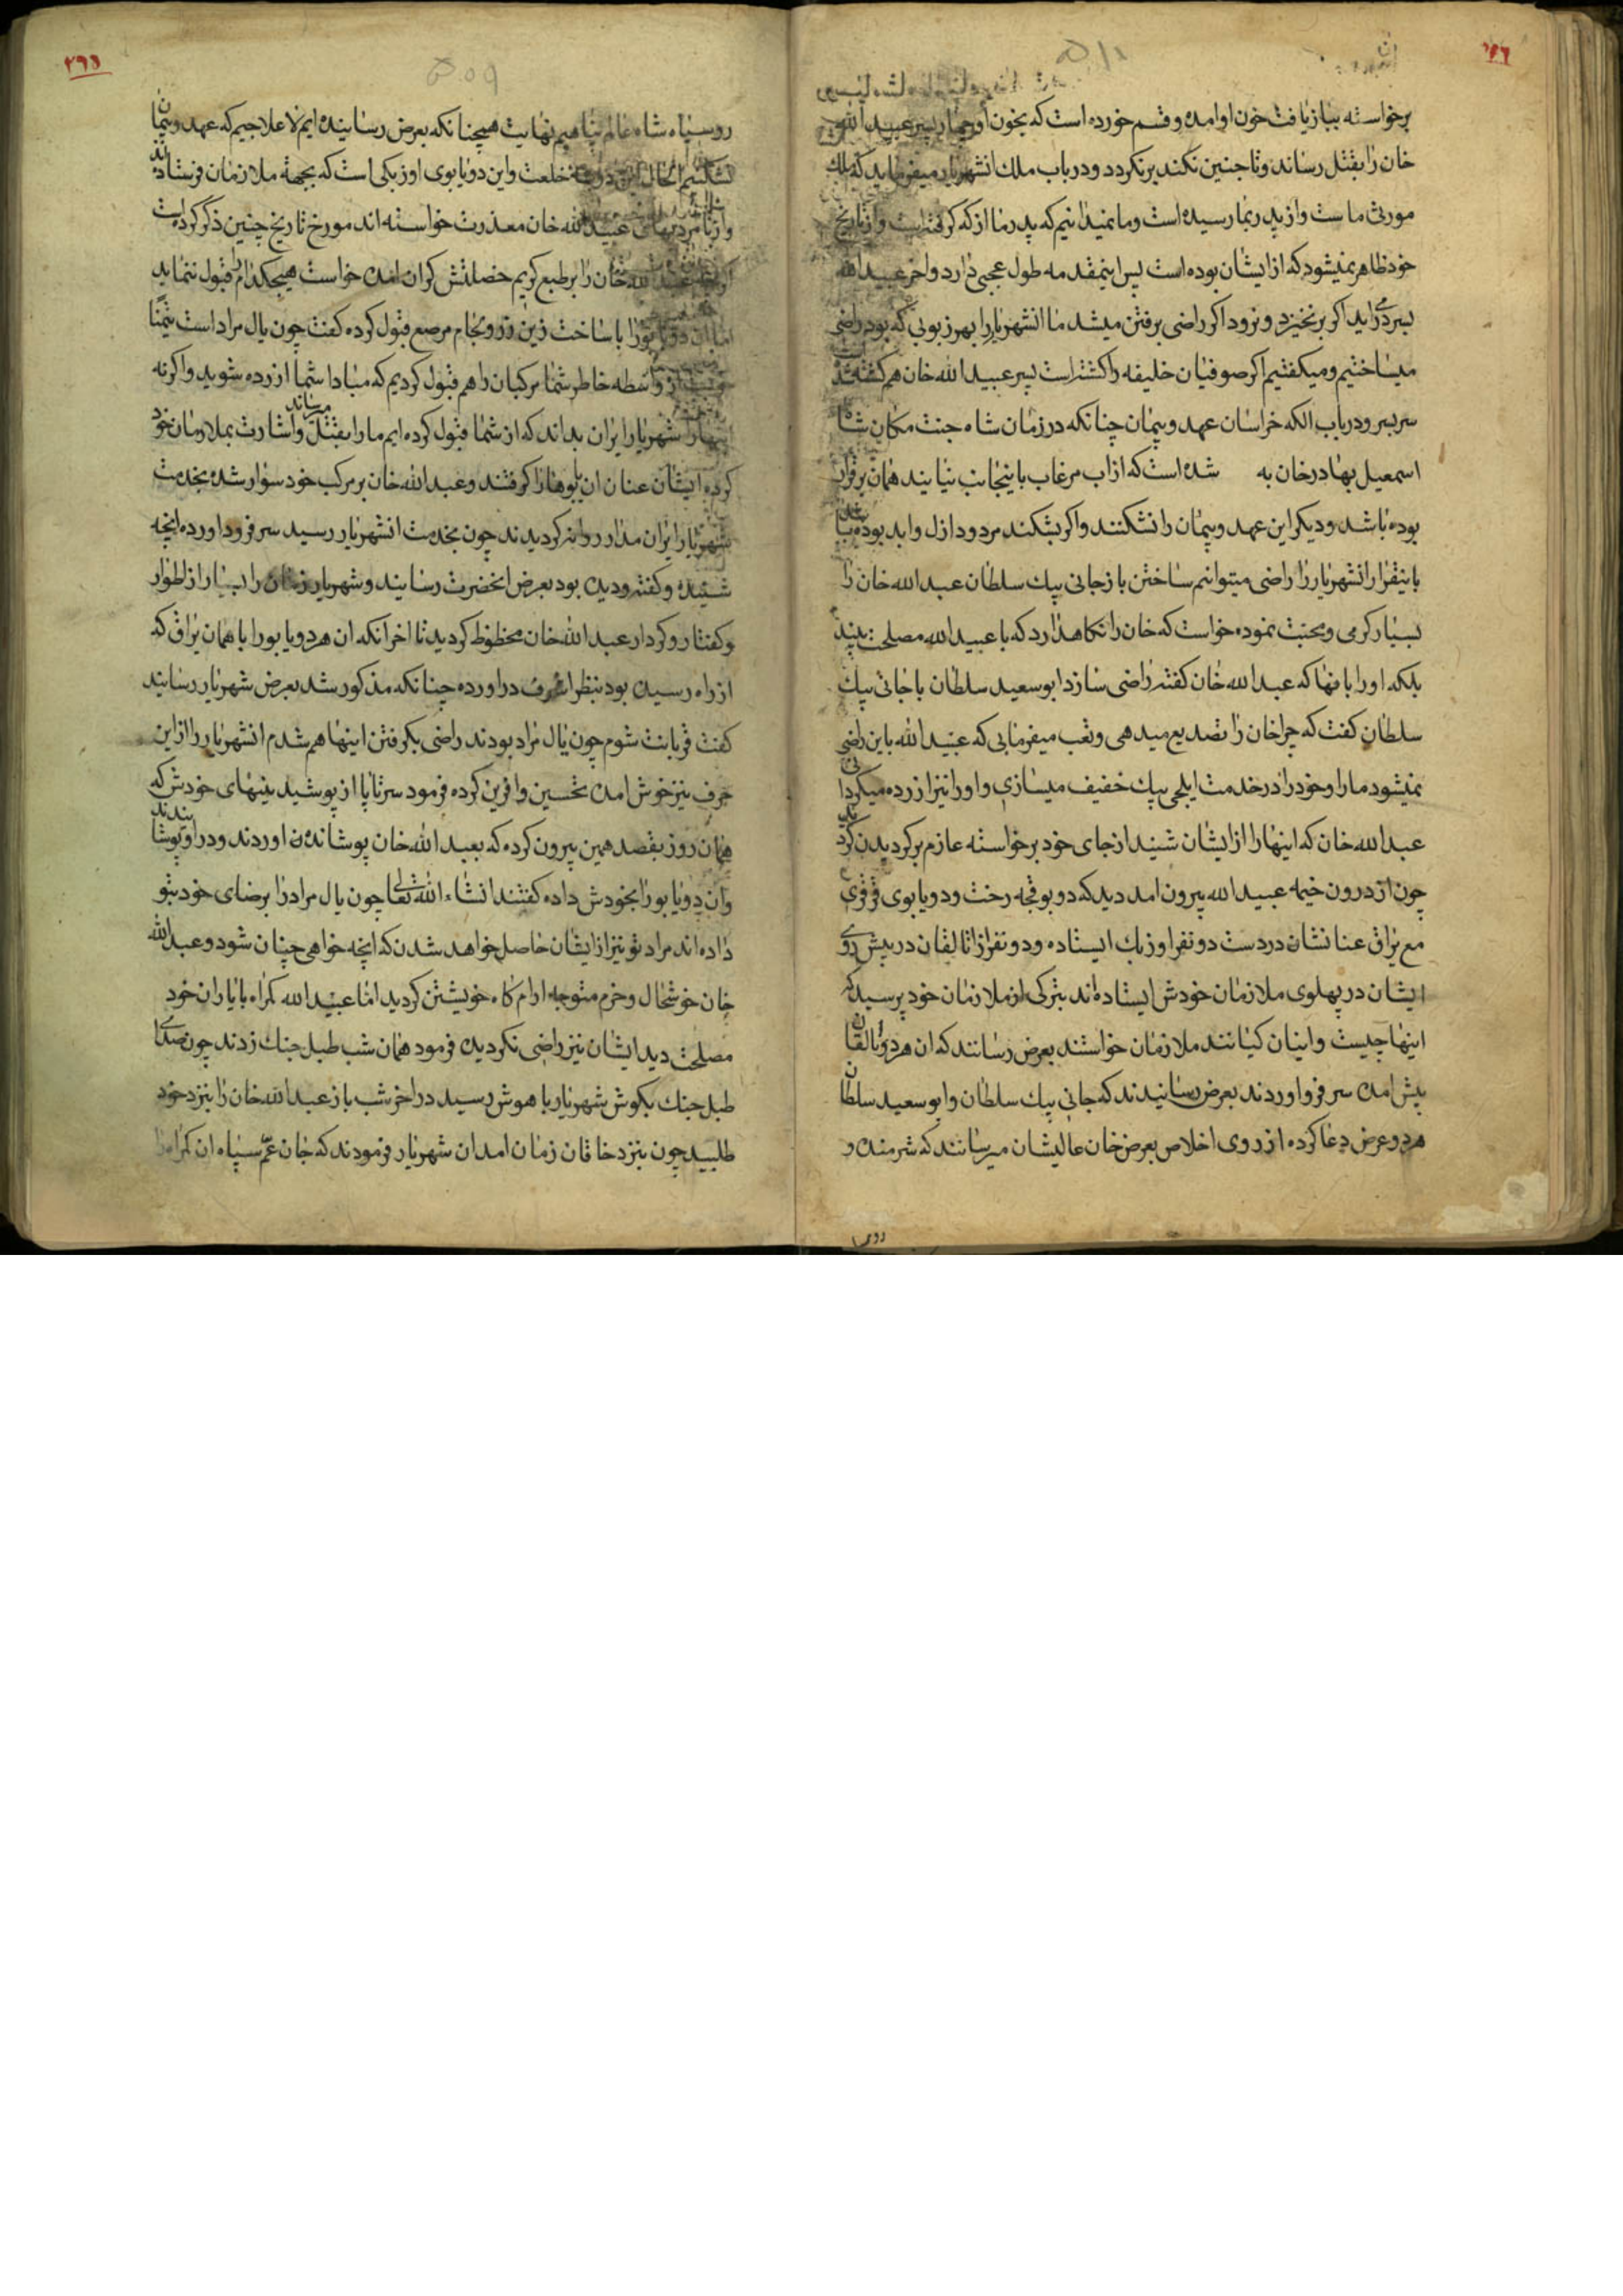 برخواسته ببازیافت خون او امده و قسم خورده است که بخون او چهار پسر عبید الله
خان را بقتل رساند و تا چنین نکند برنکردد و در باب ملک انشهریار میفرماید که ملک
مورثی ماست و از پدر بما رسیده است و ما نمیدانیم که پدر ما از که کرفته است و از تاریخ
خود ظاهر نمیشود که از ایشان بوده است پس اینمقدمه طول عجبی دارد و اخر عبید الله
بسر در اید اکر برنخیزد و نرود اکر راضی برفتن میشد ما انشهریار را بهر زبونی که بود راضی
میساختیم و میکفتیم اکر صوفیان خلیفه را کشته است پسر عبید الله خان هم کشته شد
سر بسر و در باب الکه خراسان عهد و پیمان چنانکه در زمان شاه جنت مکان شاه
اسمعیل بهادرخان به شده است که از اب مرغاب باینجانب نیایند همان برقرار
بوده باشد و دیکر این عهد و پیمان را نشکنند و اکر بشکند مردود ازل و ابد بوده باشد
باینقرار انشهریار را راضی میتوانم ساختن باز جانی بیک سلطان عبد الله خان را
بسیار کرمی و محبت نموده خواست که خان را نکاهدارد که با عبید الله مصلحت بیند
بلکه او را بانها که عبد الله خان کفته راضی سازد ابو سعید سلطان با جانی بیک
سلطان کفت که چرا خان را تصدیع میدهی و تعب میفرمایی که عبید الله باین راضی
نمیشود ما را و خود را در خدمت ایلچی بیک خفیف میسازی و او را نیز ازرده میکردانی
عبد الله خان که اینها را از ایشان شنید از جای خود برخواسته عازم برکردیدن کردید
چون از درون خیمه عبید الله بیرون امد دید که دو بوقجه رخت و دو یابوی قرقری
مع یراق عنانشان در دست دو نفر اوزبک ایستاده و دو نفر از اتالقان در پیش روی
ایشان در پهلوی ملازمان خودش ایستاده اند بترکی از ملازمان خود پرسید که
اینها چیست و اینان کیانند ملازمان خواستند بعرض رسانند که ان هر دو اتالقان
پیش امده سر فرو اوردند بعرض رسانیدند که جانی بیک سلطان و ابو سعید سلطان
هر دو عرض دعا کرده از روی اخلاص بعرض خان عالیشان میرسانند که شرمنده و
روسیاه شاه عالم پناهیم نهایت همچنانکه بعرض رسانیده ایم لاعلاجیم که عهد و پیمان
نشکنیم الحال این خلعت و این دو یابوی اوزبکی است که بجهة ملازمان فرستاده اند
و از نامردیهای عبید الله خان معذرت خواسته اند مورخ تاریخ چنین ذکر کرده است
که عبد الله خان را بر طبع کریم خصلتش کران امده خواست هیچکدام را قبول ننماید
اما ان دو یابو را با ساخت زین زر و لجام مرصع قبول کرده کفت چون یال مراد است تیمنا
واسطه خاطر شما مرکبان را هم قبول کردیم که مبادا شما ازرده شوید و اکر نه
اینها را شهریار ایران بداند که از شما قبول کرده ایم ما را بقتل میرساند و اشارت بملازمان خود
کرده ایشان عنان ان یابوها را کرفتند و عبد الله خان بر مرکب خود سوار شده بخدمت
شهریار ایران مدار روانه کردیدند چون بخدمت انشهریار رسید سر فرود اورده انچه
شنیده و کفته و دیده بود بعرض انحضرت رسانید و شهریار زمان را بسیار از اطوار
و کفتار و کردار عبد الله خان محظوظ کردید تا اخر انکه ان هر دو یابو را با همان یراق که
از راه رسیده بود بنظر اشرف در اورده چنانکه مذکور شد بعرض شهریار رسانید
کفت قربانت شوم چون یال مراد بودند راضی بکرفتن اینها هم شدم انشهریار را از این
حرف نیز خوش امده تحسین و افرین کرده فرمود سرتاپا از پوشیدنیهای خودش که
همان روز بقصد همین بیرون کرده که بعبد الله خان پوشانده اوردند و در او پوشانیدند
و ان دو یابو را بخودش داده کفتند انشاء الله تعالی چون یال مراد را برضای خود بتو
داده اند مراد تو نیز از ایشان حاصل خواهد شدن که انچه خواهی چنان شود و عبد الله
خان خوشحال و خرم متوجه ارام کاه خویشتن کردید اما عبید الله کمراه با یاران خود
مصلحت دید ایشان نیز راضی نکردیده فرمود همان شب طبل جنک زدند چون صدای
طبل جنک بکوش شهریار با هوش رسید در اخر شب باز عبد الله خان را بنزد خود
طلبید چون بنزد خاقان زمان امد ان شهریار فرمودند که جان عم سپاه ان کمراه